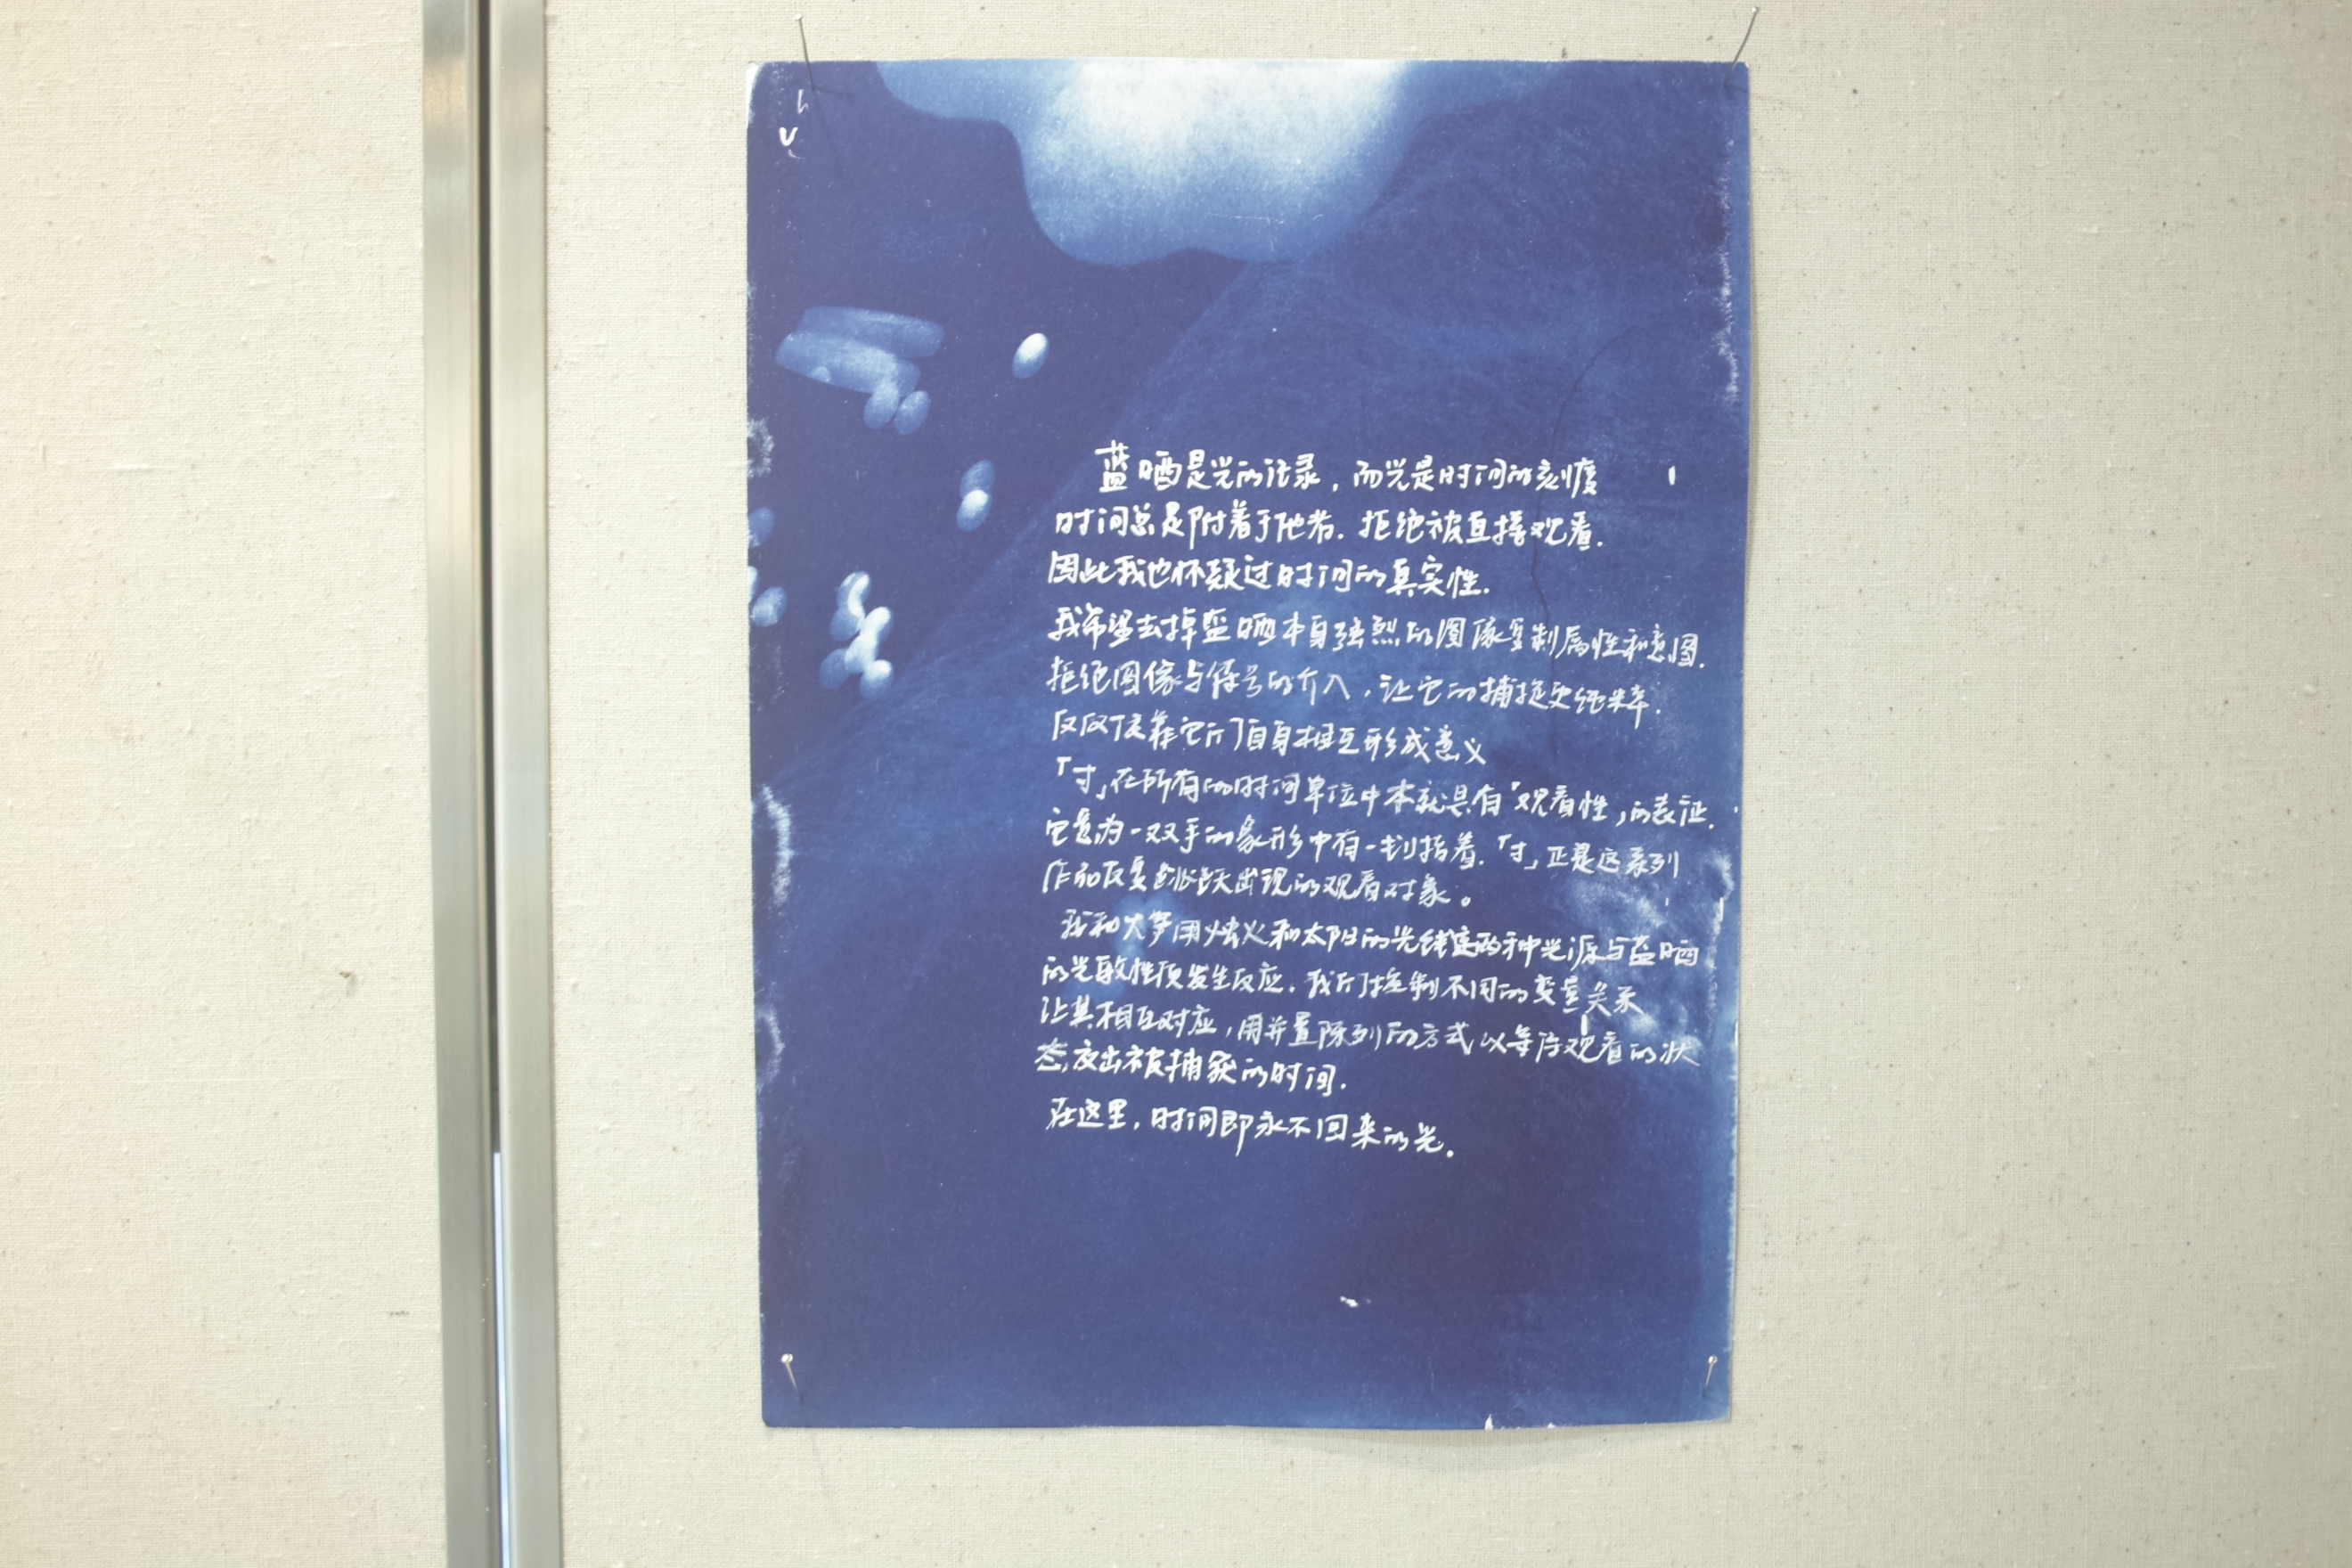 蓝晒是光的记录，而光是时间的刻度
时间总是附着于他者．拒绝被直接观看．
因此我也怀疑过时间的真实性．
我希望去掉蓝晒本身强烈的图像复制属性和意图．
拒绝图像与符号的介入，让它的捕捉更纯粹．
仅仅依靠它们自身相互形成意义
「寸」在所有的时间单位中本就具有「观看性」的表征．
它是为一双手的象形中有一划指着．「寸」正是这系列
作品反复跳跃出现的观看对象。
我和大笋用烛火和太阳的光线这两种光源与蓝晒
的光敏性质发生反应．我们控制不同的变量关系
让其相互对应，用并置陈列的方式以等待观看的状
态，交出被捕获的时间．
在这里，时间即永不回来的光．